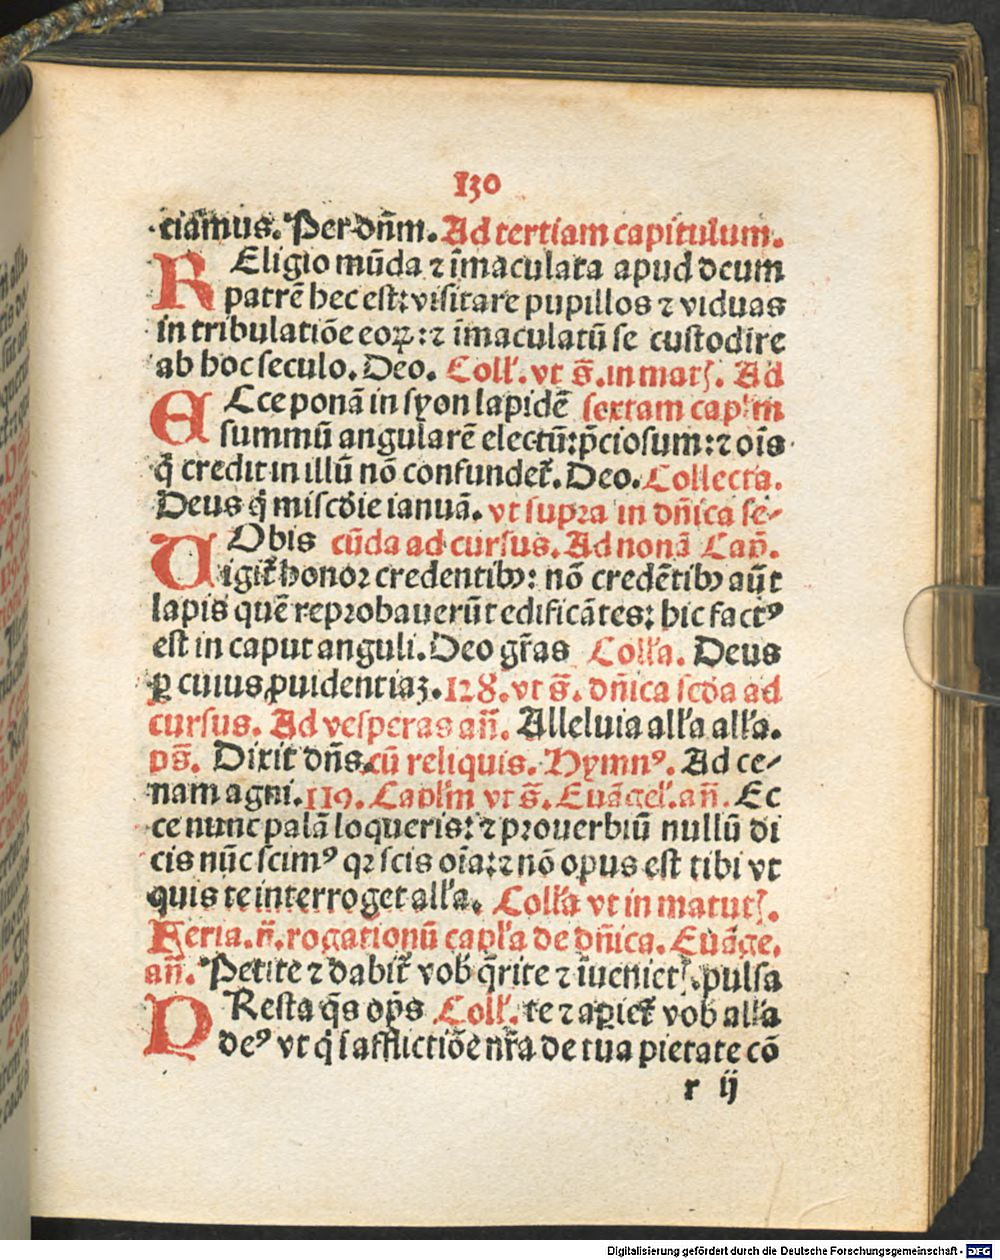 130
ciamus. Per dn̄m. Ad tertiam capitulum.
REligio mūda ⁊ īmaculata apud deum
patrē hec est: visitare pupillos ⁊ viduas
in tribulatiōe eoꝝ: ⁊ īmaculatū se custodire
ab hoc seculo. Deo. Coll'. vt s̄. in matꝭ. Ad
ECce ponā in syon lapidē sextam cap'lm
summū angularē electū: p̄ciosum: ⁊ oīs
q̇ credit in illū nō confundet᷑. Deo. Collecta.
Deus q̇ mīscd̄ie ianuā. vt supra in dn̄ica se⸗
VObis cūda ad cursus. Ad nonā Cap̄.
igit᷑ honoꝛ credentibꝰ: nō credētibꝰ aūt
lapis quē repꝛobauerūt edificātes: hic factꝰ
est in caput anguli. Deo gr̄as Coll'a. Deus
ꝑ cuius ꝓuidentiaꝫ. 128. vt s̄. dn̄ica sc̄da ad
cursus. Ad vesperas an̄. Alleluia all'a all'a.
ps̄. Dixit dn̄s. cū reliquis. Hymnꝰ. Ad ce⸗
nam agni. 119. Capl'm vt s̄. Euāgel'. an̄. Ec
ce nunc palā loqueris: ⁊ pꝛouerbiū nullū di
cis nūc scimꝰ qꝛ scis oīa: ⁊ nō opus est tibi vt
quis te interroget all'a. Coll'a vt in matutꝭ.
Feria. ij. rogationū capl'a de dn̄ica. Euāge.
an̄. Petite ⁊ dabit᷑ vob̄ q̄rite ⁊ īuenietꝭ. pulsa
PResta q̄s op̄s Coll'. te ⁊ aꝑiet᷑ vob̄ all'a
deꝰ vt q̇ ī afflictiōe nr̄a de tua pietate cō
r ij
Digitalisierung gefördert durch die Deutsche Forschungsgemeinschaft - DFG